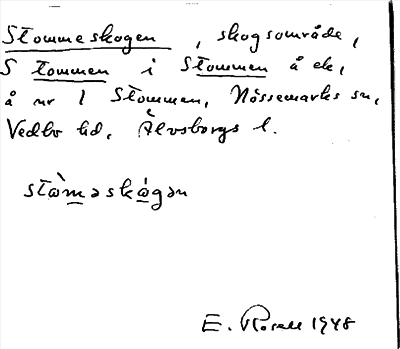 Stommeskogen, skogsområde,
S tommen i Stommen å ek,
å nr 1 Stommen, Nössemarks sn,
Vedbo hd, Älvsborgs l.
stòməskógən
E. Rosell 1948